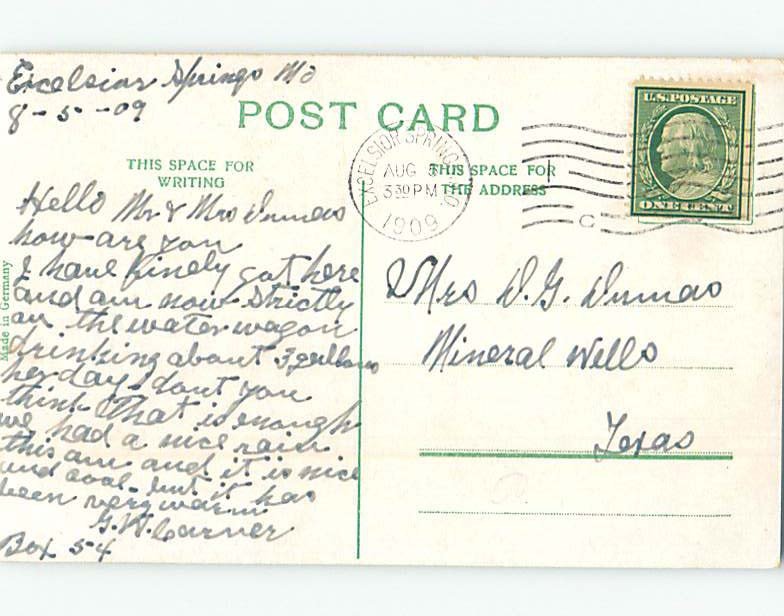 Excelsior Springs Mo
8-5-09
POST CARD
THIS SPACE FOR
WRITING
THIS SPACE FOR
THE ADDRESS
EXCELSIOR SPRINGS, MO.
AUG 5
3 30 PM
1909
U.S. POSTAGE
ONE CENT
Hello Mr & Mrs Dumas
how are you
I have finely got here
and am now strictly
on the water wagon
drinking about 3 gallons
per day - dont you
think that is enough
we had a nice rain
this am and it is nice
and cool - but it has
been very warm
G.W. Carner
Box 54
Mrs D.G. Dumas
Mineral Wells
Texas
Made in Germany